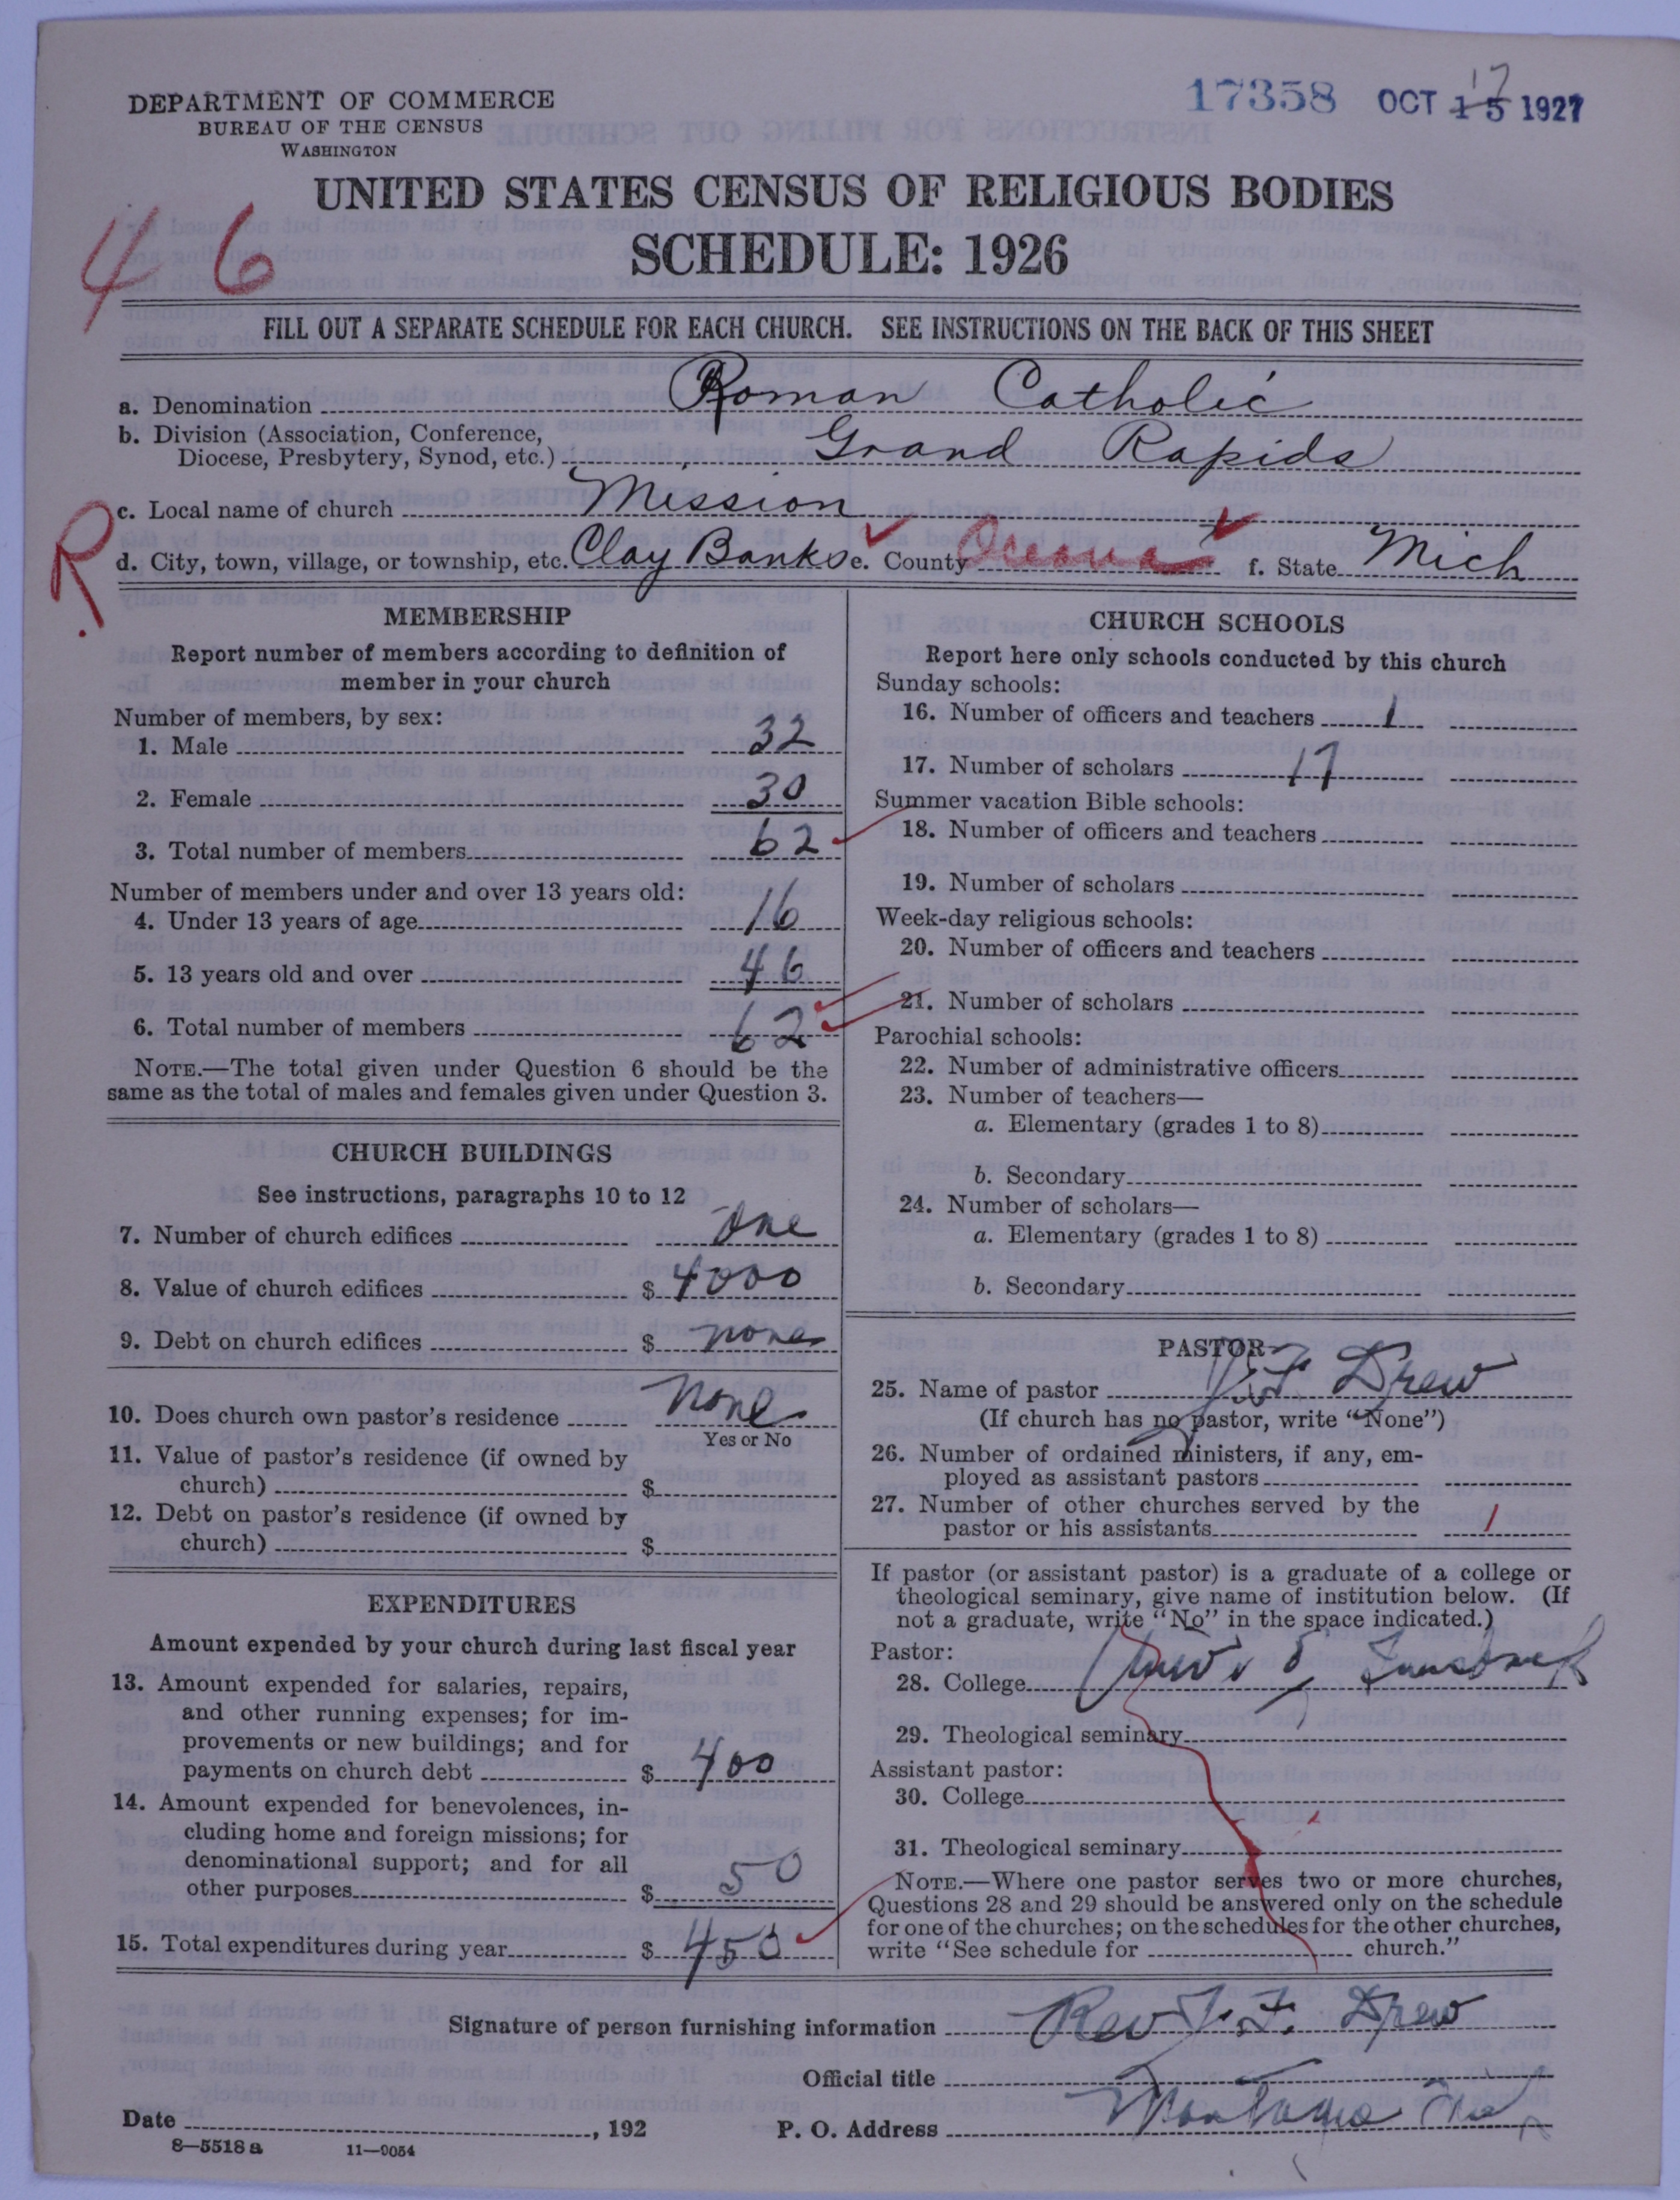 17358 OCT 15 1927
17
DEPARTMENT OF COMMERCE
BUREAU OF THE CENSUS
WASHINGTON
UNITED STATES CENSUS OF RELIGIOUS BODIES
46
SCHEDULE: 1926
FILL OUT A SEPARATE SCHEDULE FOR EACH CHURCH. SEE INSTRUCTIONS ON THE BACK OF THIS SHEET
a. Denomination Roman Catholic
b. Division (Association, Conference,
Diocese, Presbytery, Synod, etc.) Grand Rapids
c. Local name of church Mission
R
d. City, town, village, or township, etc. Clay Banks e. County Oceana f. State Mich
MEMBERSHIP
Report number of members according to definition of
member in your church
Number of members, by sex:
1. Male 32
2. Female 30
3. Total number of members 62
Number of members under and over 13 years old:
4. Under 13 years of age 16
5. 13 years old and over 46
6. Total number of members 62
NOTE.—The total given under Question 6 should be the
same as the total of males and females given under Question 3.
CHURCH BUILDINGS
See instructions, paragraphs 10 to 12
7. Number of church edifices One
8. Value of church edifices $ 4000
9. Debt on church edifices $ none
10. Does church own pastor's residence None
Yes or No
11. Value of pastor's residence (if owned by
church) $
12. Debt on pastor's residence (if owned by
church) $
EXPENDITURES
Amount expended by your church during last fiscal year
13. Amount expended for salaries, repairs,
and other running expenses; for im-
provements or new buildings; and for
payments on church debt $ 400
14. Amount expended for benevolences, in-
cluding home and foreign missions; for
denominational support; and for all
other purposes $ 50
15. Total expenditures during year $ 450
CHURCH SCHOOLS
Report here only schools conducted by this church
Sunday schools:
16. Number of officers and teachers 1
17. Number of scholars 17
Summer vacation Bible schools:
18. Number of officers and teachers
19. Number of scholars
Week-day religious schools:
20. Number of officers and teachers
21. Number of scholars
Parochial schools:
22. Number of administrative officers
23. Number of teachers—
a. Elementary (grades 1 to 8)
b. Secondary
24. Number of scholars—
a. Elementary (grades 1 to 8)
b. Secondary
PASTOR
25. Name of pastor J. F. Drew
(If church has no pastor, write "None")
26. Number of ordained ministers, if any, em-
ployed as assistant pastors
27. Number of other churches served by the
pastor or his assistants 1
If pastor (or assistant pastor) is a graduate of a college or
theological seminary, give name of institution below. (If
not a graduate, write "No" in the space indicated.)
Pastor:
28. College Univ of
29. Theological seminary
Assistant pastor:
30. College
31. Theological seminary
NOTE.—Where one pastor serves two or more churches,
Questions 28 and 29 should be answered only on the schedule
for one of the churches; on the schedules for the other churches,
write "See schedule for church."
Signature of person furnishing information Rev J. F. Drew
Official title
Date , 192 P. O. Address Montague Mich
8—5518a 11—9054